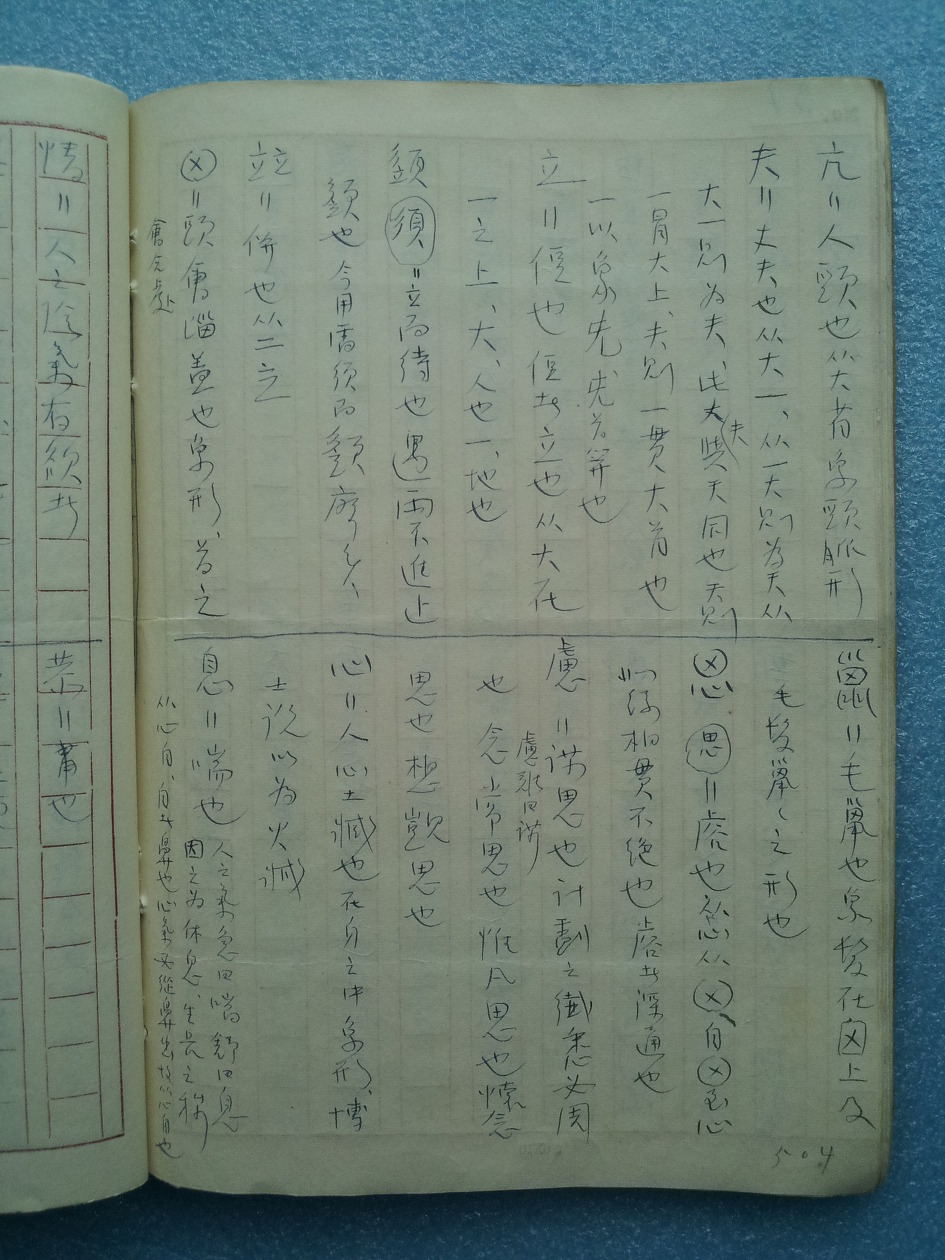 亢＝人頸也从大省象頸脈形
夫＝丈夫也从大一、从一大則為天从
大一則为夫、此夫與天同也天則
一冒大上、夫則一貫大首也
一以象先、先首笄也
立＝侸也侸者立也从大在
一之上、大、人也一、地也
須＝立而待也遇雨不進止
額也今用需須而𩓣廢矣、
竝＝併也从二立
囟＝頭會匘蓋也象形、首之
會合處
巤＝毛巤也象髮在囟上及
毛髮巤巤之形也
思＝睿也从心从囟、自囟至心
如絲相貫不絕也睿者深通也
慮＝謀思也計劃之纖悉必周
慮難曰謀
也念常思也惟凡思也懷念
思也想覬思也
心＝人心土臧也在身之中象形、博
士說以為火臧
息＝喘也人之氣急曰喘舒曰息
因之为休息、生長之称
从心自、自者鼻也心氣必從鼻出故从心自也
504
情＝人之陰氣有欲者
恭＝肅也